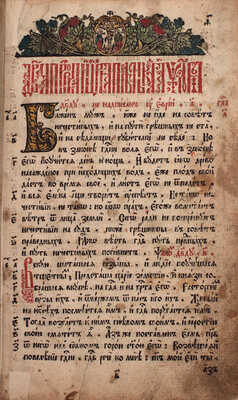 дв҃ду, не надписанъ ѹ еврѣи, а҃
Блаженъ мужъ, иже не иде на совѣтъ
нечестивыхъ, и на пути грѣшныхъ не ста
и на сѣдалищи губитель не сѣде. Но
въ законѣ гн҃и воля его, и в законѣ
его поучится день и нощь. И будетъ яко древо
насажденое при исходищихъ водъ, еже плодъ свои
дастъ во время свое, и листъ его не ѿпадетъ.
и вся елика аще творитъ успѣетъ. Не тако не
честивіи, не тако. но яко прахъ, егоже возметаетъ
вѣтръ ѿ лица земли. Сего ради не воскреснутъ
нечестивіи на судъ, ниже грѣшницы, въ совѣтъ
праведныхъ. Яко вѣсть гд҃ь путь праведныхъ
и путь нечестивыхъ погибнетъ. дв҃ду.
Вскую шаташася языцы, и людіе поучишася
тщетнымъ. Предсташа царіе земстіи, и князи со
брашася вкупѣ, на гд҃а и на хр҃та его. Расторгнемъ
узы ихъ, и ѿвержемъ ѿ насъ иго ихъ. Живыи
на нб҃сѣхъ посмѣется имъ, и гд҃ь поругается имъ.
Тогда возгл҃етъ к нимъ гнѣвомъ своимъ, и яростію
своею смятетъ я. Азъ же поставленъ есмь цр҃ь
ѿ него над сіономъ горою ст҃ою его. Возвѣщаяи
повелѣніе гд҃не, гд҃ь рече ко мнѣ: сн҃ъ мои еси ты.
азъ